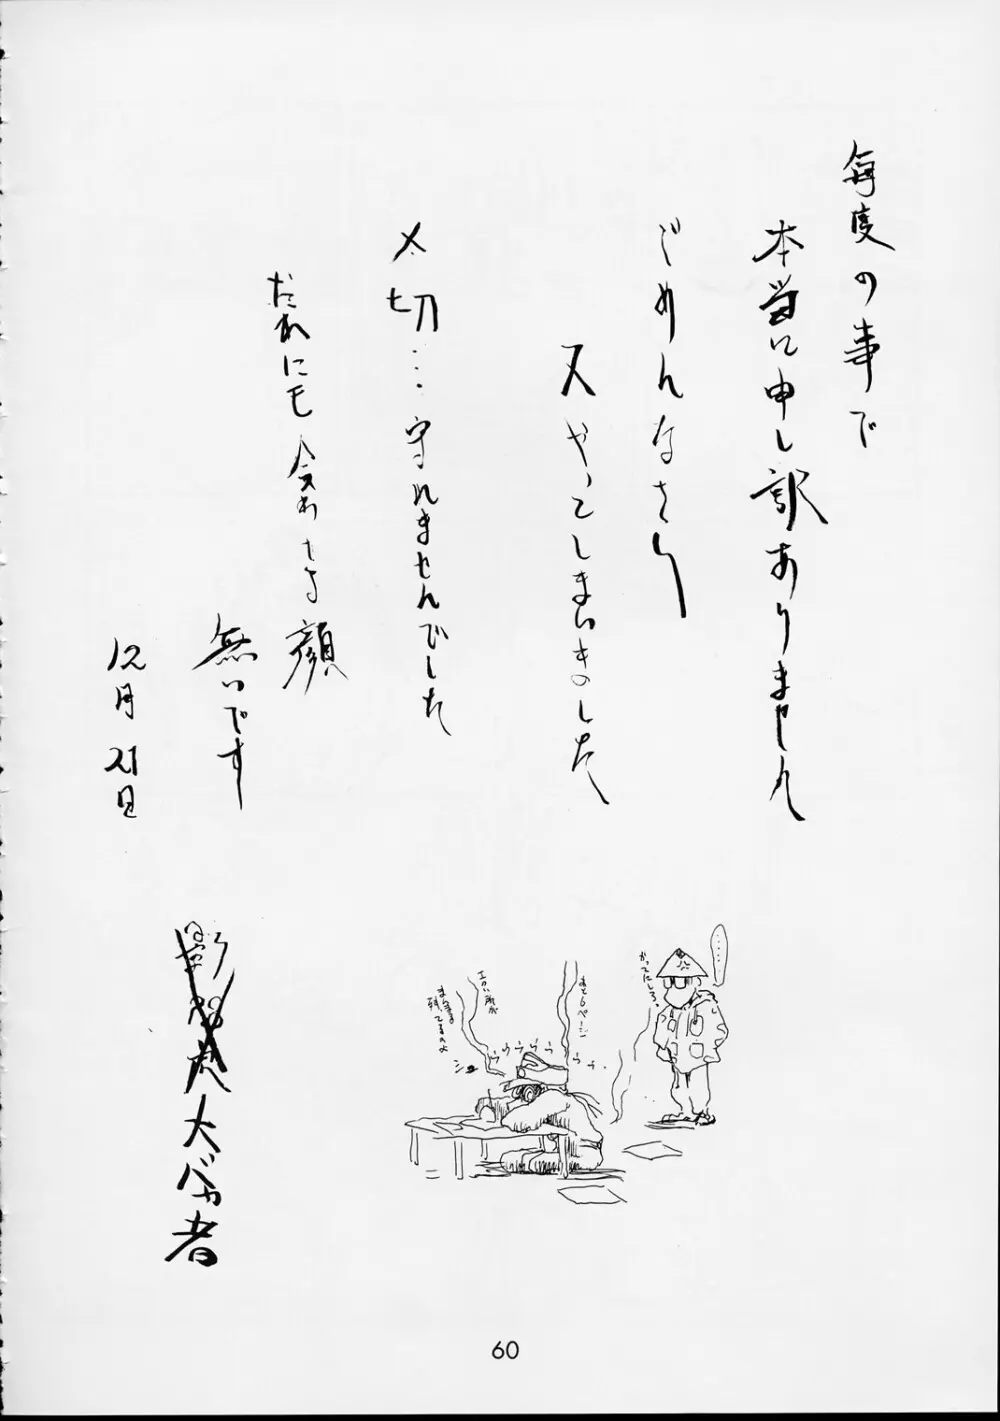 毎度の事で
本当に申し訳ありません
ごめんなさい
又やってしまいましした
〆切…守れませんでした
だれにも会わす
顔
無いです
12月21日
影
虎
大バカ者
……
かってにしろ。
あと6ページ
ううううう
うう.
エロい所が
まんま
残ってるのよ
60